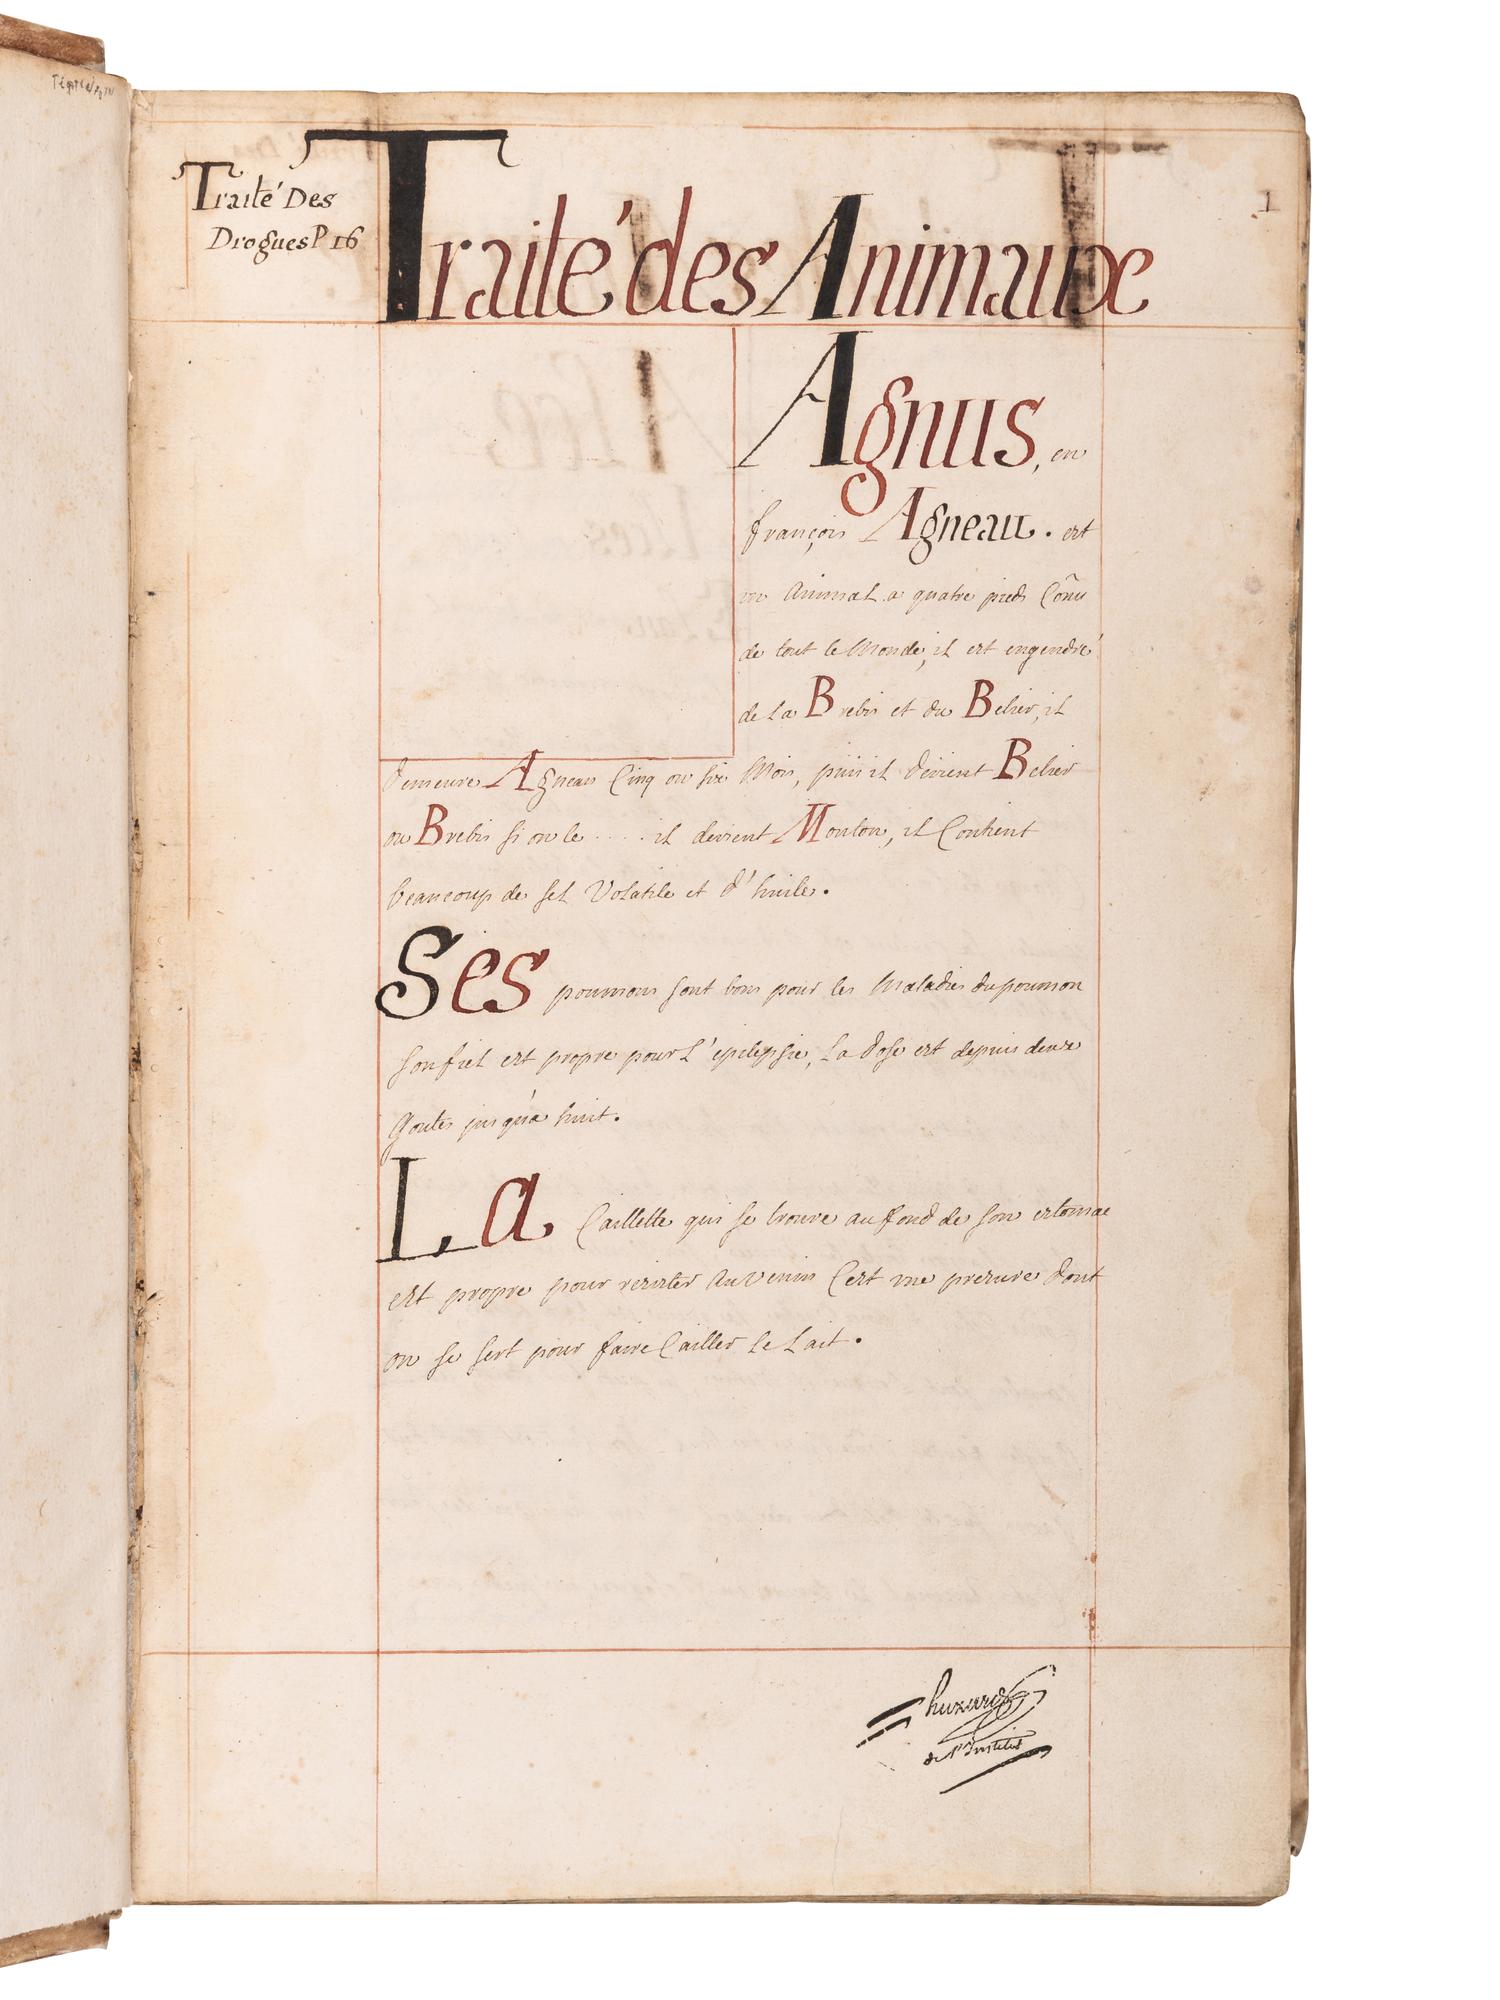 Traité Des
Drogues P 16
1
Traité des Animaux
Agnus, en
françois Agneau. est
un Animal a quatre pieds Coñu
de tout le Monde, il est engendré
de la Brebis et du Belier, il
demeure Agneau Cinq ou six Mois, puis il devient Belier
ou Brebis si on le .... il devient Mouton, il Contient
beaucoup de sel Volatile et d'huile.
Ses poumons sont bons pour les Maladies du poumon
son fiel est propre pour l'epilepsie, la dose est depuis deux
Goutes jusqu'a huit.
La Caillette qui se trouve au fond de son estomac
est propre pour resister au venin C'est une presure dont
on se sert pour faire Cailler le Lait.
huzard
de l'Institut